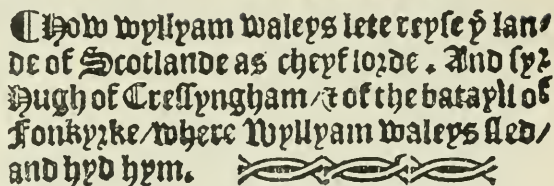 ¶How wyllyam waleys lete reyse yͤ lan/
de of Scotlande as cheyf lorde. And syr
Hugh of Cressyngham/⁊ of the batayll of
Fonkyrke/where Wyllyam waleys fled/
and hyd hym.